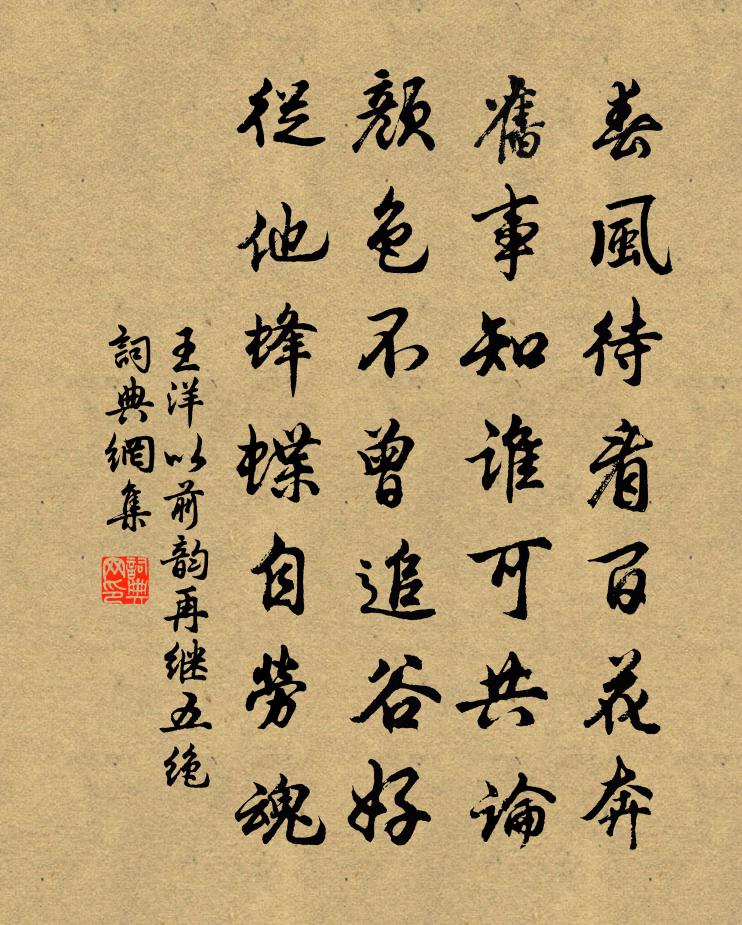 春風待看百花奔
舊事知誰可共論
顏色不曾追谷好
從他蜂蝶自勞魂
王洋以前韵再继五绝
詞典網集
詞典網印